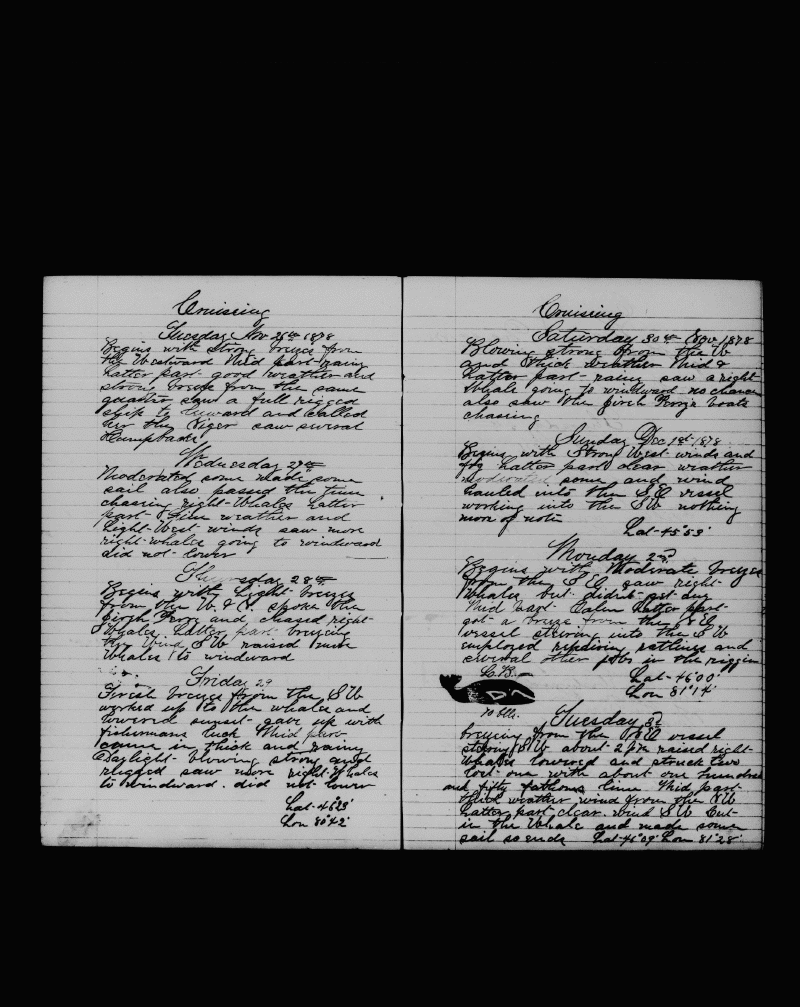 Cruising
Tuesday Nov 26th 1878
Begins with Strong breeze from
the Westward Mid part rainy
Latter part good weather and
strong breeze from the same
quarter saw a full rigged
ship to leward and called
her the Niger saw several
Humpbacks
Wednesday 27th
Moderated some made some
sail also passed the time
chasing right Whales Latter
part fine weather and
Light West winds saw more
right whales going to windward
did not lower
Thursday 28th
Begins with Light breeze
from the W. & N. spoke the
and chased right
Whales Latter part breezing
Wind S W raised more
Whales to windward
Friday 29
First breeze from the S W
worked up to the whales and
lowered sunset gave up with
fishermans luck Mid part
came in thick and rainy
Daylight blowing strong and
rugged saw more right Whales
to windward did not lower
Lat 46°23'
Lon 80°42'
Cruising
Saturday 30th Nov 1878
Blowing strong from the W
and thick weather Mid &
Latter part rainy saw a right
Whale going to windward no chance
also saw the boats
chasing
Sunday Dec 1st 1878
Begins with Strong West winds and
fog Latter part clear weather
Moderated some and wind
hauled into the S E vessel
working into the S W nothing
more of note
Lat 45°53'
Monday 2nd
Begins with Moderate breeze
from the S E saw right
Whales but didnt get any
Mid part Calm Latter part
got a breeze from the
vessel steering into the S W
employed repairing ratlines and
several other jobs in the riggin
Lat 46°00'
Lon 81°14'
70 blls.
Tuesday 3d
breezing from the vessel
steering S W about 2 P.M. raised right
Whales lowered and struck two
lost one with about one hundred
and fifty fathoms line Mid part
thick weather wind from the
Latter part clear wind S W Cut
in the Whale and made some
sail so ends Lat 46°09' Lon 81°28'